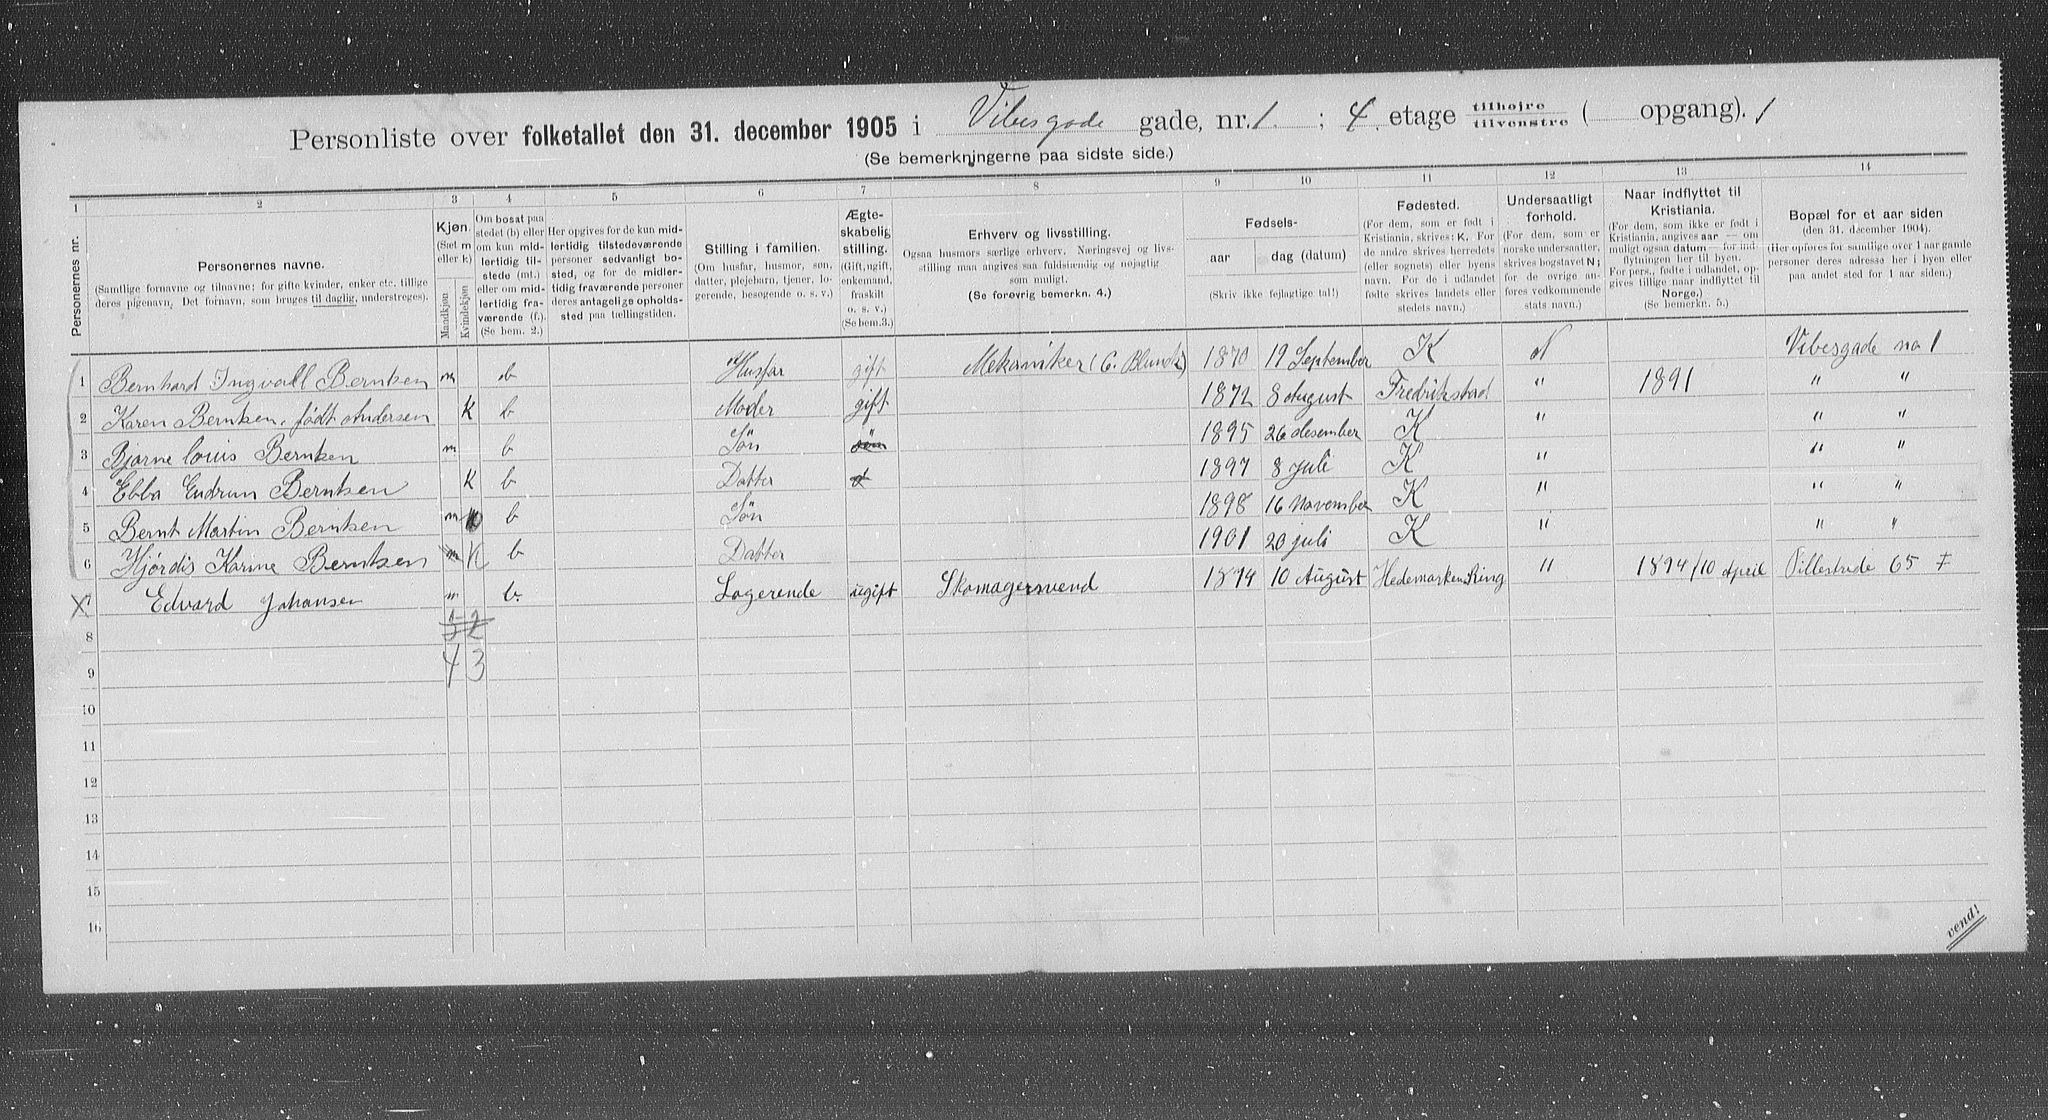 Personliste over folketallet den 31. december 1905 i Vibesgade gade, nr. 1. ; 4. etage tilhøire / tilvenstre ( opgang). 1
(Se bemerkningerne paa sidste side.)
1 2 3 4 5 6 7 8 9 10 11 12 13 14
Personernes nr.
Personernes navne.
(Samtlige fornavne og tilnavne; for gifte kvinder, enker etc. tillige
deres pigenavn. Det fornavn, som bruges til daglig, understreges).
Kjøn.
(Sæt m
eller k)
Mandkjøn
Kvindekjøn
Om bosat paa
stedet (b) eller
om kun mid-
lertidig til-
stede (mt.)
eller om mid-
lertidig fra-
værende (f.).
(Se bem. 2.)
Her opgives for de kun mid-
lertidig tilstedeværende
personer sedvanligt bo-
sted, og for de midler-
tidig fraværende personer
deres antagelige opholds-
sted paa tællingstiden.
Stilling i familien.
(Om husfar, husmor, søn,
datter, plejebarn, tjener, lo-
gerende, besøgende o. s. v.)
Ægte-
skabelig
stilling.
(Gift, ugift,
enkemand,
fraskilt
o. s. v.)
(Se bem. 3.)
Erhverv og livsstilling.
Ogsaa husmors særlige erhverv. Næringsvej og livs-
stilling maa angives saa fuldstændig og nøjagtig
som muligt.
(Se forøvrig bemerkn. 4.)
Fødsels-
aar dag (datum)
(Skriv ikke fejlagtige tal!)
Fødested.
(For dem, som er født i
Kristiania, skrives: K. For
de andre skrives herredets
(eller sognets) eller byens
navn. For de i udlandet
fødte skrives landets eller
stedets navn.)
Undersaatligt
forhold.
(For dem, som er
norske undersaatter,
skrives bogstavet N;
for de øvrige an-
føres vedkommende
stats navn.)
Naar indflyttet til
Kristiania.
(For dem, som ikke er født i
Kristiania, angives aar — om
muligt ogsaa datum — for ind-
flytningen her til byen.
For pers., fødte i udlandet, op-
gives tillige naar indflyttet til
Norge.)
(Se bemerkn. 5.)
Bopæl for et aar siden
(den 31. december 1904).
(Her opføres for samtlige over 1 aar gamle
personer deres adresse her i byen eller
paa andet sted for 1 aar siden.)
1 Bernhard Ingvall Berntsen m b Husfar gift Mekaniker 1870 19 September K N Vibesgade no 1
2 Karen Berntsen, født Andersen K b Moder gift 1872 8 August Fredrikstad " 1891 " "
3 Bjarne Louis Berntsen m b Søn " 1895 26 desember K " " "
4 Ebba Gudrun Berntsen K b Datter 1897 8 juli K " " "
5 Bernt Martin Berntsen m b Søn 1898 16 November K " " "
6 Hjørdis Karine Berntsen K b Datter 1901 20 juli K " " "
X 7 Edvard Johansen m b. Logerende ugift Skomagersvend 1874 10 August Hedemarken Ring " 1894/10 April Pillestrede 65
8
9 4 3
10
11
12
13
14
15
16
vend!